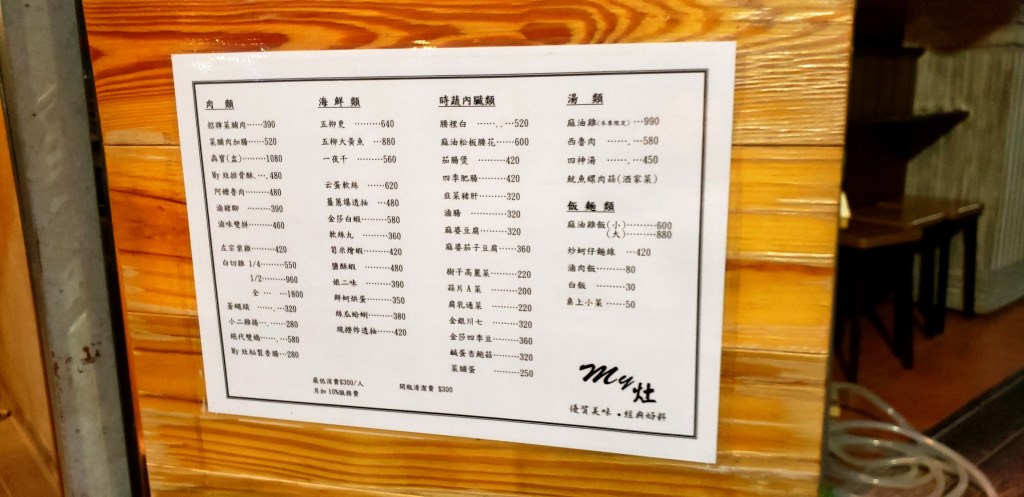 肉 類
招牌菜脯肉……390
菜脯肉加腸……520
矗寶(盅)………1080
My 灶排骨酥.….480
阿嬤魯肉………480
滷豬腳 ………390
滷味雙拼………460
左宗棠雞………420
白切雞 1/4………550
1/2………960
全 … …1800
蒼蠅頭 …….…320
小二雞捲….……280
絕代雙嬌….……580
My 灶秘製香腸…280
海 鮮 類
五柳更 ………640
五柳大黃魚 …880
一夜干 ………560
云蛋軟絲 ……620
薑蔥爆透抽 …480
金莎白蝦………580
軟絲丸 ………360
筍米燴蝦………420
鹽酥蝦 ………480
娘二味 ………390
鮮蚵烘蛋………350
絲瓜蛤蜊………380
現撈炸透抽……420
時蔬內臟類
腰裡白 ……‥…520
麻油松板腰花……600
茄腸煲 ………420
四季肥腸 ………420
韭菜豬肝 ………320
滷腸 ………320
麻婆豆腐………320
麻婆茄子豆腐……360
樹子高麗菜………220
蒜片A菜 ………200
腐乳通菜 ………220
金銀川七 ………320
金莎四季豆………360
鹹蛋杏鮑菇………320
菜脯蛋 ………250
湯 類
麻油雞(冬季限定)…990
西魯肉 …….…580
四神湯 …….…450
魷魚螺肉蒜(酒家菜)
飯 麵 類
麻油雞飯(小)………600
(大)………880
炒蚵仔麵線 …420
滷肉飯………80
白飯 ………30
桌上小菜 ……50
最低消費$300/人
另加10%服務費
開瓶清潔費 $300
My 灶
優質美味．經典好料